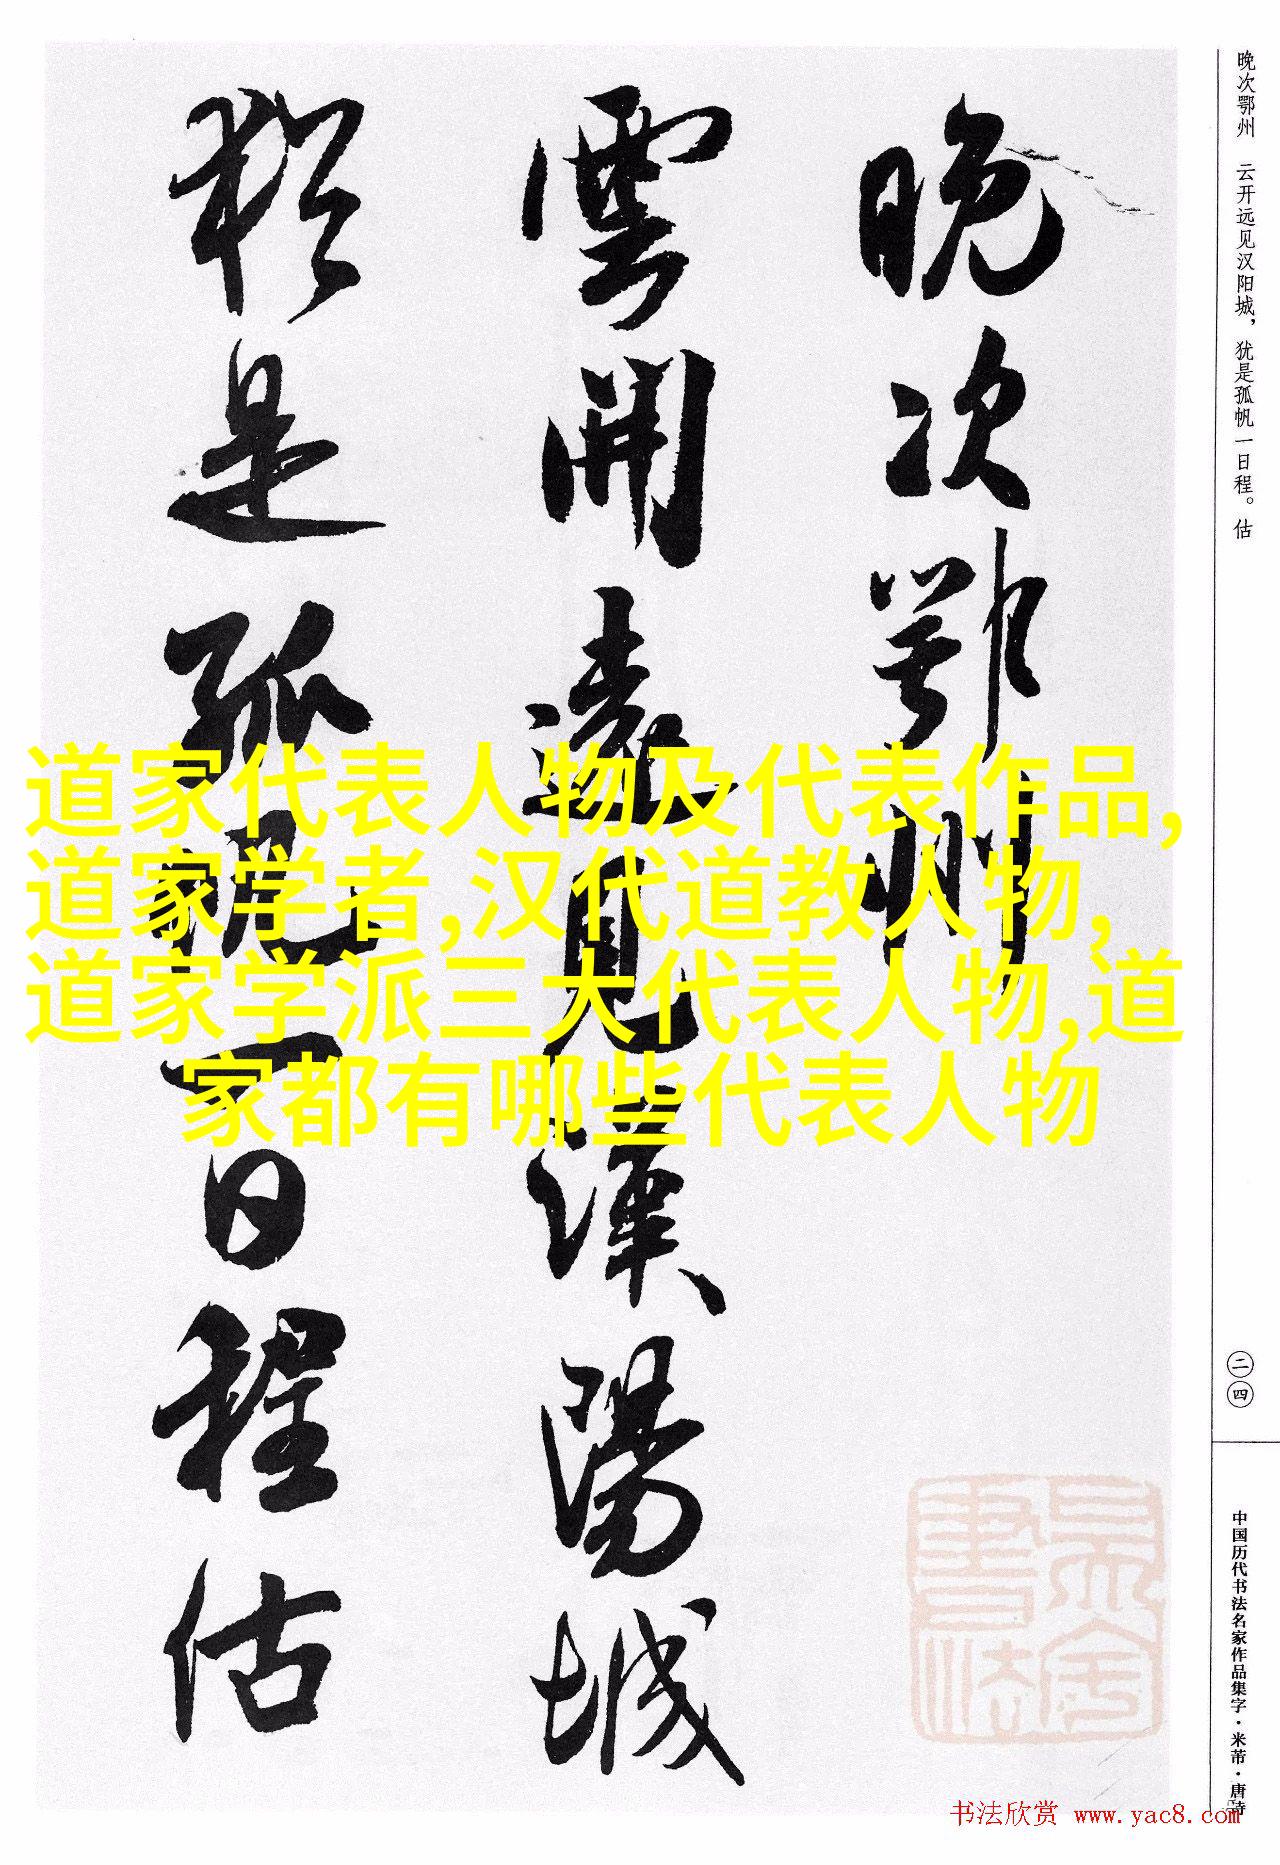 晚次鄂州 云开远见汉阳城，犹是孤帆一日程。估
晚次鄂州
雲開遠見漢陽城
猶是孤帆一日程估
道家代表人物及代表作品,
道家学者,汉代道教人物,
道家学派三大代表人物,道
家都有哪些代表人物
二四
中国历代书法名家作品集字·米芾·唐诗
书法欣赏 www.yac8.com